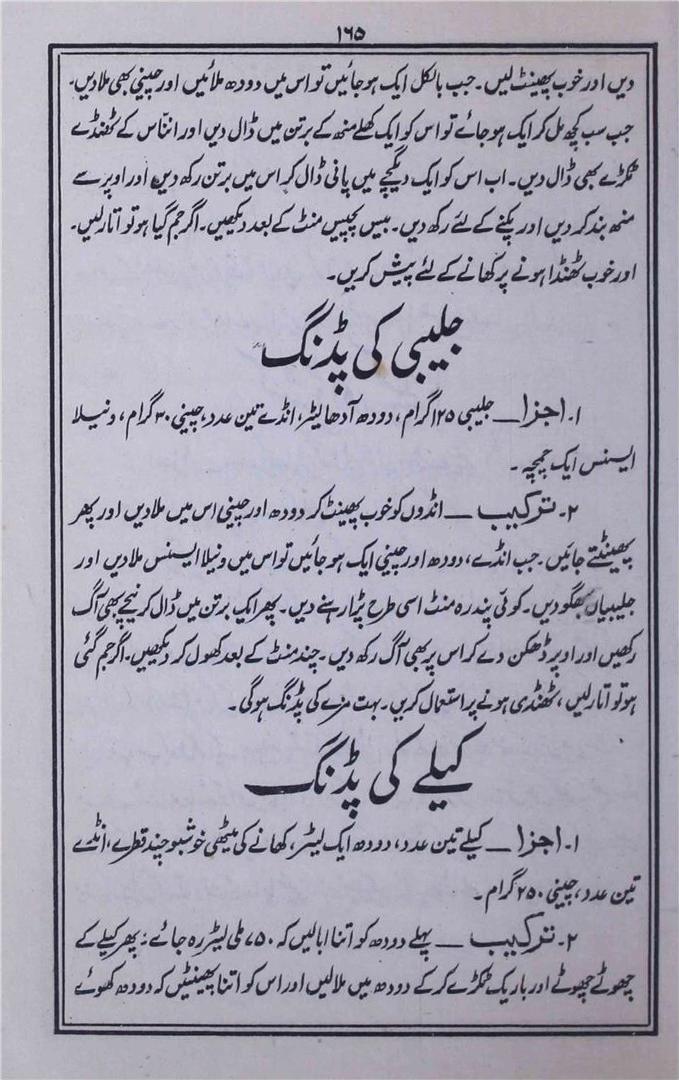 ۱۶۵
دیں اور خوب پھینٹ لیں۔ جب بالکل ایک ہو جائیں تو اس میں دودھ ملائیں اور چینی بھی ملا دیں۔
جب سب کچھ مل کر ایک ہو جائے تو اس کو ایک کھلے منھ کے برتن میں ڈال دیں اور انناس کے ٹھنڈے
ٹکڑے بھی ڈال دیں۔ اب اس کو ایک دیگچے میں پانی ڈال کر اس میں برتن رکھ دیں اور اوپر سے
منھ بند کر دیں اور پکنے کے لئے رکھ دیں۔ بیس پچیس منٹ کے بعد دیکھیں۔ اگر جم گیا ہو تو اتار لیں۔
اور خوب ٹھنڈا ہونے پر کھانے کے لئے پیش کریں۔
جلیبی کی پڈنگ
۱۔ اجزا — جلیبی ۱۲۵ گرام، دودھ آدھا لیٹر، انڈے تین عدد، چینی ۳۰ گرام، ونیلا
ایسنس ایک چمچہ۔
۲۔ ترکیب — انڈوں کو خوب پھینٹ کر دودھ اور چینی اس میں ملا دیں اور پھر
پھینٹتے جائیں۔ جب انڈے، دودھ اور چینی ایک ہو جائیں تو اس میں ونیلا ایسنس ملا دیں اور
جلیبیاں بھگو دیں۔ کوئی پندرہ منٹ اسی طرح پڑا رہنے دیں۔ پھر ایک برتن میں ڈال کر نیچے بھی آگ
رکھیں اور اوپر ڈھکن دے کر اس پر بھی آگ رکھ دیں۔ چند منٹ کے بعد کھول کر دیکھیں۔ اگر جم گئی
ہو تو اتار لیں، ٹھنڈی ہونے پر استعمال کریں۔ بہت مزے کی پڈنگ ہوگی۔
کیلے کی پڈنگ
۱۔ اجزا — کیلے تین عدد، دودھ ایک لیٹر، کھانے کی میٹھی خوشبو چند قطرے، انڈے
تین عدد، چینی ۲۵۰ گرام۔
۲۔ ترکیب — پہلے دودھ کو اتنا ابالیں کہ ۷۵۰ ملی لیٹر رہ جائے۔ پھر کیلے کے
چھوٹے چھوٹے اور باریک ٹکڑے کر کے دودھ میں ملا لیں اور اس کو اتنا پھینٹیں کہ دودھ کھوئے